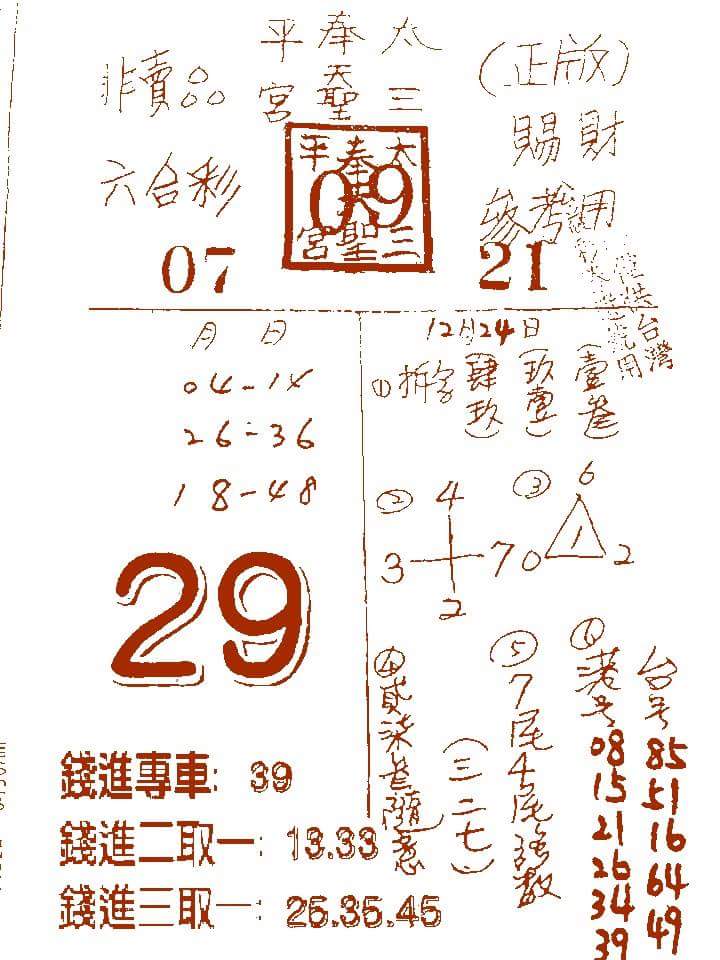 太三 奉天聖 平宮
非賣品
(正版)
賜財
參考用
六合彩
太三 奉天聖 平宮
09
07
21
僅供台灣
月 日
04-14
26-36
18-48
29
錢進專車: 39
錢進二取一: 13.33
錢進三取一: 25.35.45
12月24日
①拆字
(肆玖)
(玖壹)
(壹參)
②
4
3
7
2
③
6
1
0
2
④貳柒
隨意
(三二七)
⑤7尾4尾強數
⑥港号
08
15
21
26
34
39
台号
85
51
16
64
49